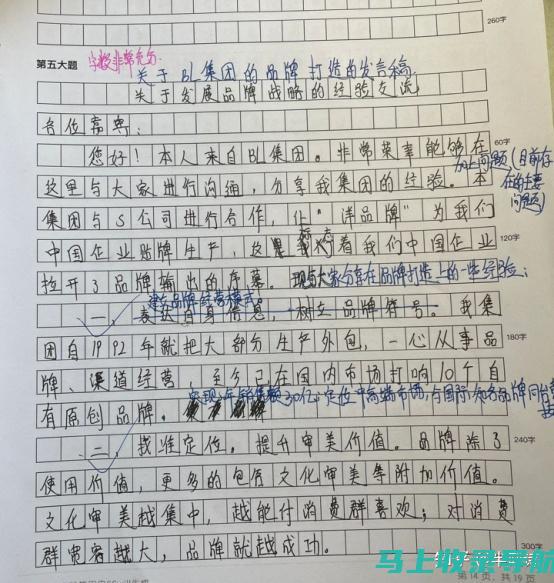 260字
第五大题 字数非常充分
关于BL集团的品牌打造的发言稿
关于发展品牌战略的经验交流
各位嘉宾：
60字
您好！本人来自BL集团。非常荣幸能够在
加上问题（目前存在的主要问题）
这里与大家进行沟通，分享我集团的经验。本
集团与S公司进行合作，让“洋品牌”为我们
标志
中国企业贴牌生产，这着我们中国企业
120字
拉开了品牌输出的序幕。现与大家分享在品牌打造上的一些经验：
建立品牌经营模式。
一，表达自身信息，树立品牌符号。我集
团自1992年就把大部分生产外包，一心从事品
180字
牌、渠道经营，至今已在国内市场打响10个自
实现年销售额30亿；定位中高端市场，与国际知名品牌同台竞
有原创品牌。
二，找准定位。提升审美价值。品牌除了
240字
使用价值，更多的包含文化审美等附加价值。
文化审美越集中，越能付消费群喜欢；对消费
群宽容越大，品牌就越成功。
300字
马上收录导航
第14页，共19页